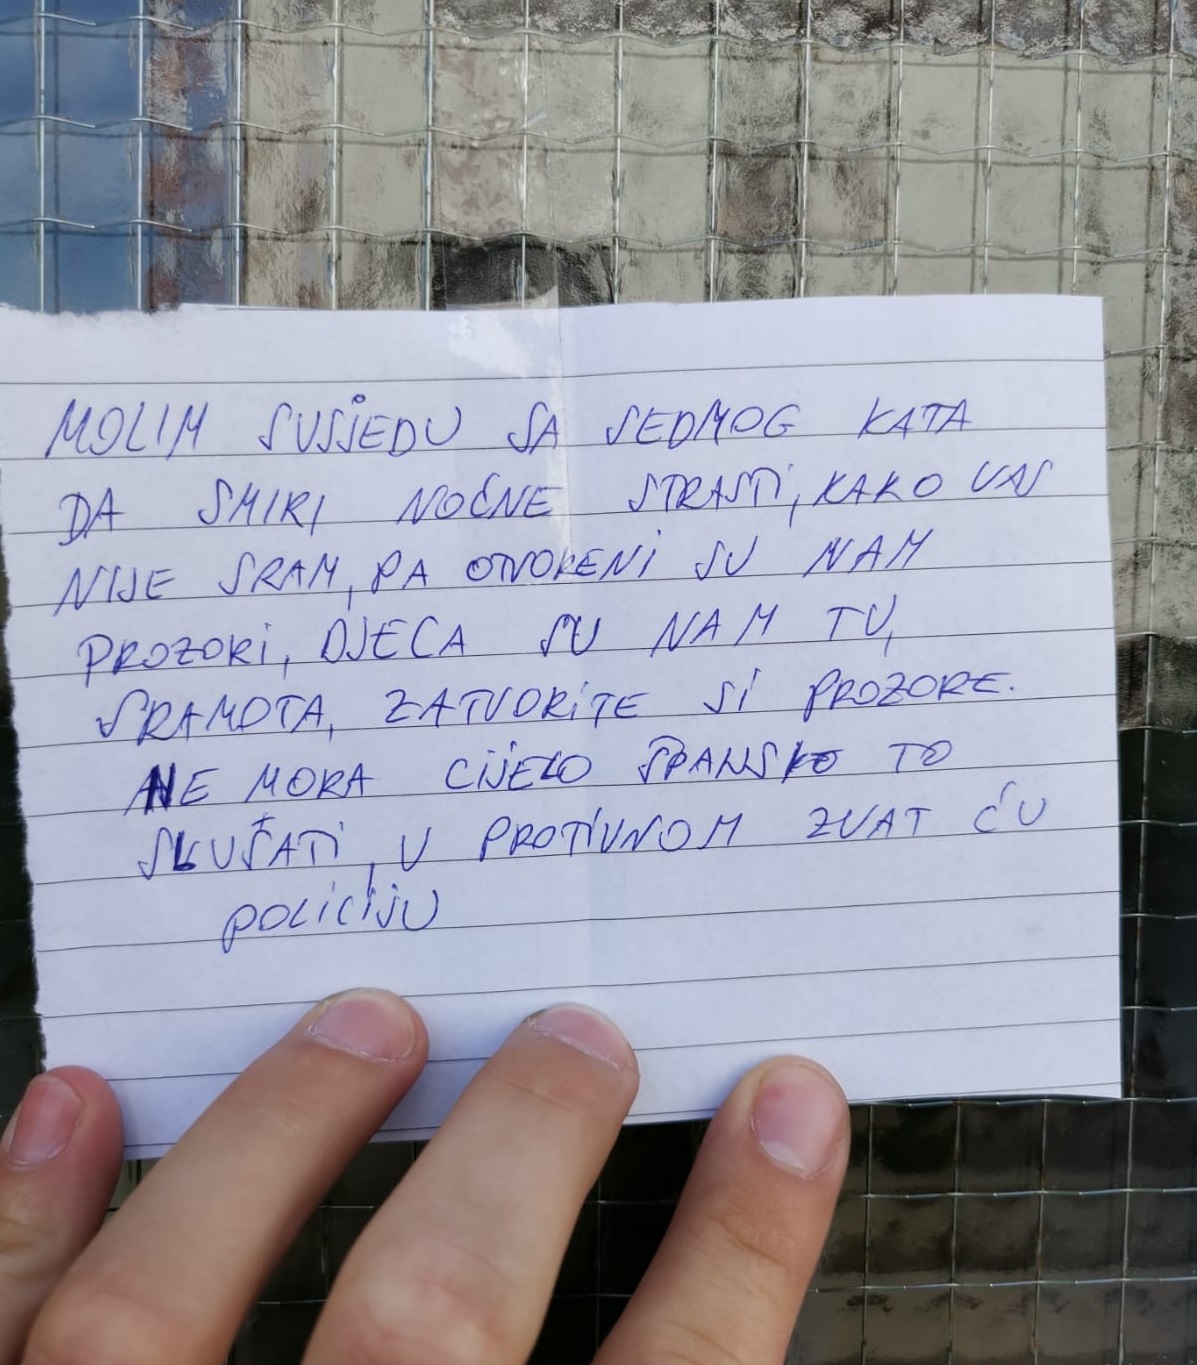 MOLIM SUSJEDU SA SEDMOG KATA
DA SMIRI NOĆNE STRASTI, KAKO VAS
NIJE SRAM, PA OTVORENI SU NAM
PROZORI, DJECA SU NAM TU,
SRAMOTA, ZATVORITE SI PROZORE.
NE MORA CIJELO ŠPANSKO TO
SLUŠATI, U PROTIVNOM ZVAT ĆU
POLICIJU